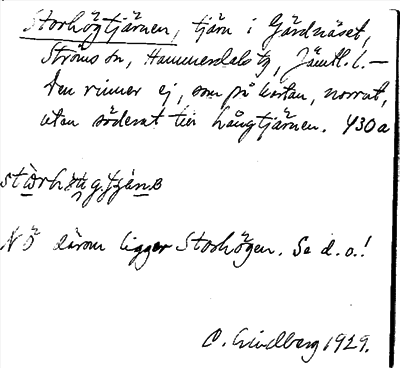 Storhögtjärnen, tjärn i Gärdnäset,
Ströms sn, Hammerdals tg, Jämtl. l. —
Den rinner ej, som på kartan, norrut,
utan söderut till Långtjärnen. Y30a
NÖ därom ligger Storhögen. Se d. o.!
O. Lindberg 1929.